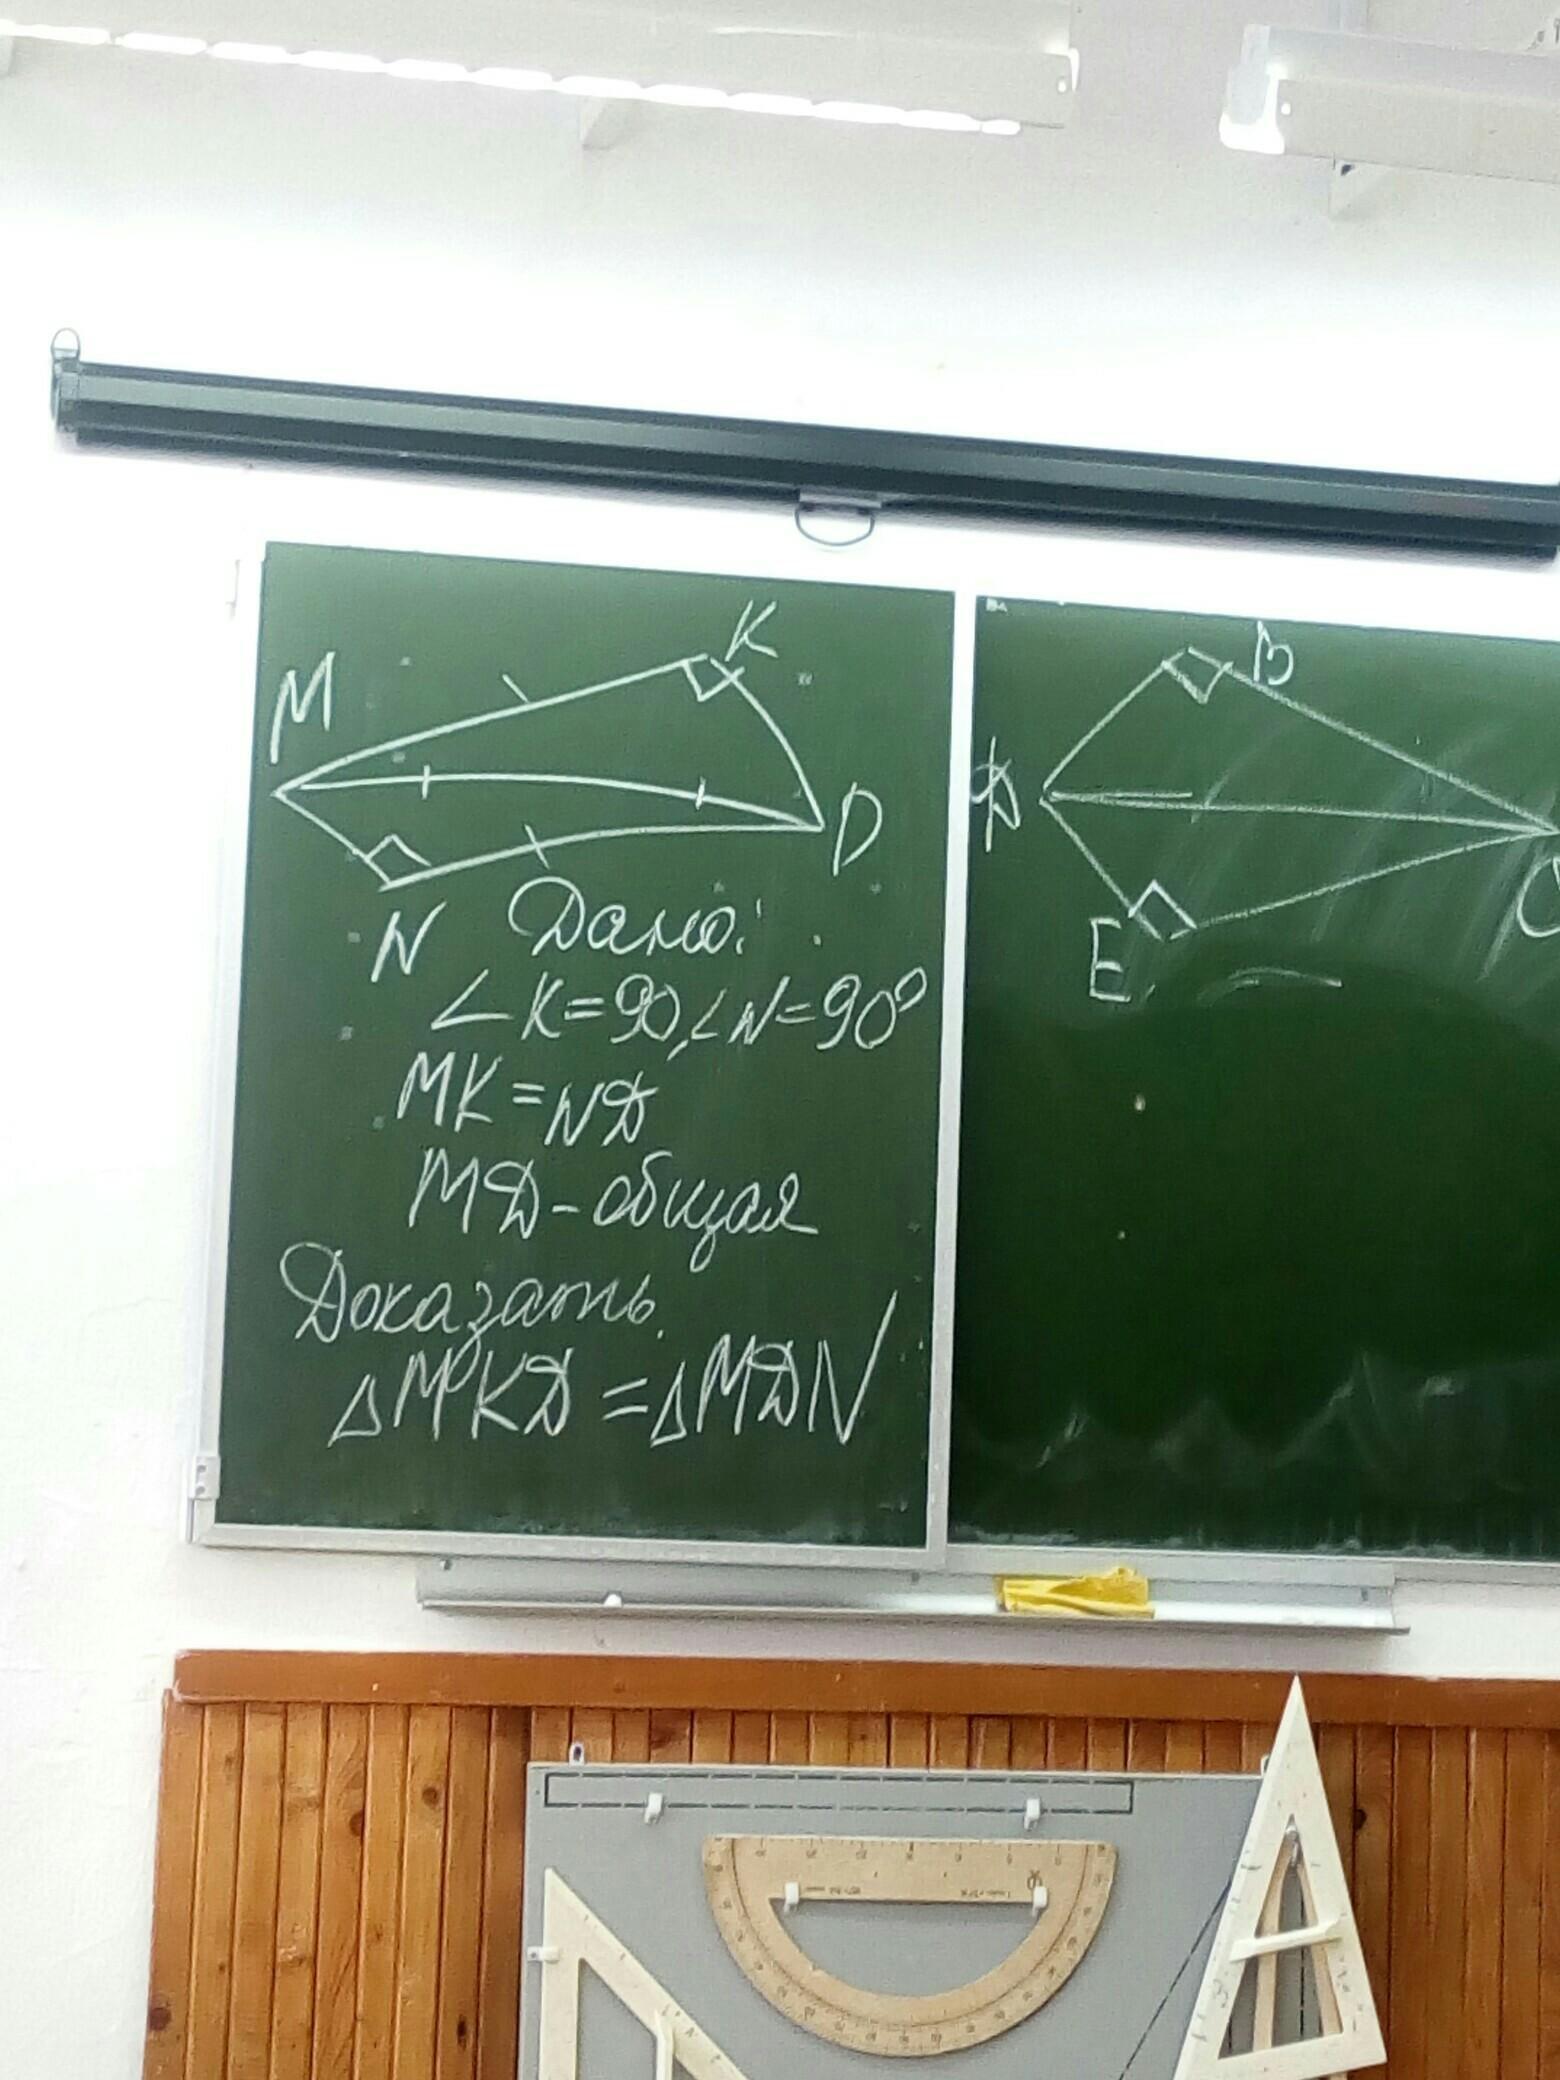 M
K
D
N
Дано:
∠K=90, ∠N=90°
MK=ND
MD-общая
Доказать
ΔMKD=ΔMDN
B
D
E